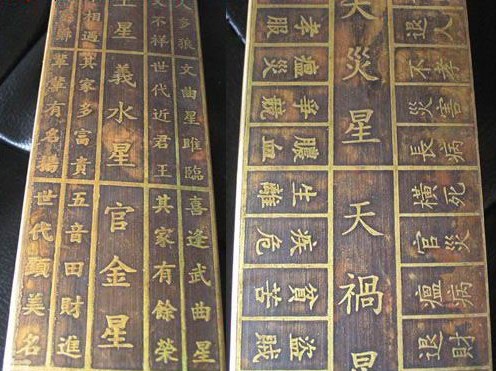 人多狼文曲星睢臨
喜逢武曲星
文不祥世代近君王
其家有餘榮
星
義水星
官金星
相遇其家多富貴
五音田財進
輩輩有名揚
世代顯美名
退人
不孝
災害
長病
橫死
官災
瘟病
退財
天災星
天禍星
孝服
瘟災
膿血
生離
疾危
貧苦
盜賊